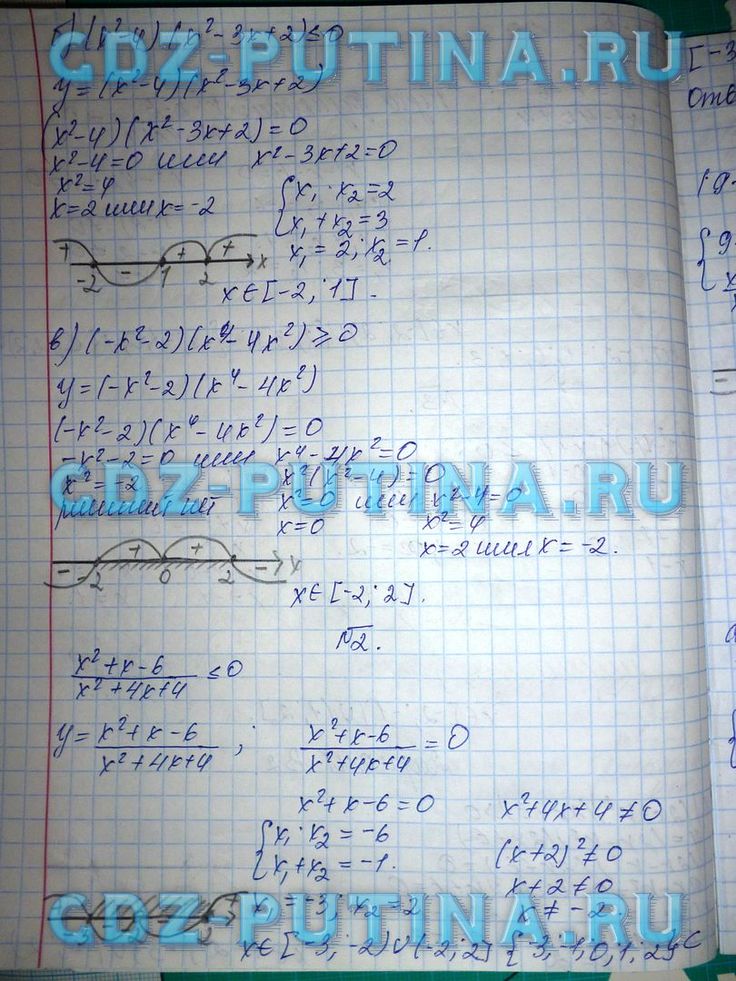 б) (x²-4)(x²-3x+2)≤0
GDZ-PUTINA.RU
y=(x²-4)(x²-3x+2)
(x²-4)(x²-3x+2)=0
x²-4=0 или x²-3x+2=0
x²=4
x=2 или x=-2
{x₁·x₂=2
x₁+x₂=3
x₁=2; x₂=1.
+ - + + x
-2 1 2
x∈[-2; 1].
в) (-x²-2)(x⁴-4x²)≥0
y=(-x²-2)(x⁴-4x²)
(-x²-2)(x⁴-4x²)=0
-x²-2=0 или x⁴-4x²=0
GDZ-PUTINA.RU
x²=-2 x²(x²-4)=0
решений нет x²=0 или x²-4=0
x=0 x²=4
x=2 или x=-2.
- + + - x
2 0 2
x∈[-2; 2].
№2.
x²+x-6/x²+4x+4 ≤0
y= x²+x-6/x²+4x+4 ; x²+x-6/x²+4x+4 =0
x²+x-6=0 x²+4x+4≠0
{x₁·x₂=-6
x₁+x₂=-1.
(x+2)²≠0
x+2≠0
x₁=-3; x₂=2 x≠-2.
GDZ-PUTINA.RU
x∈[-3; -2)∪(-2; 2] {-3,-1,0,1,2}
[-3
Отв